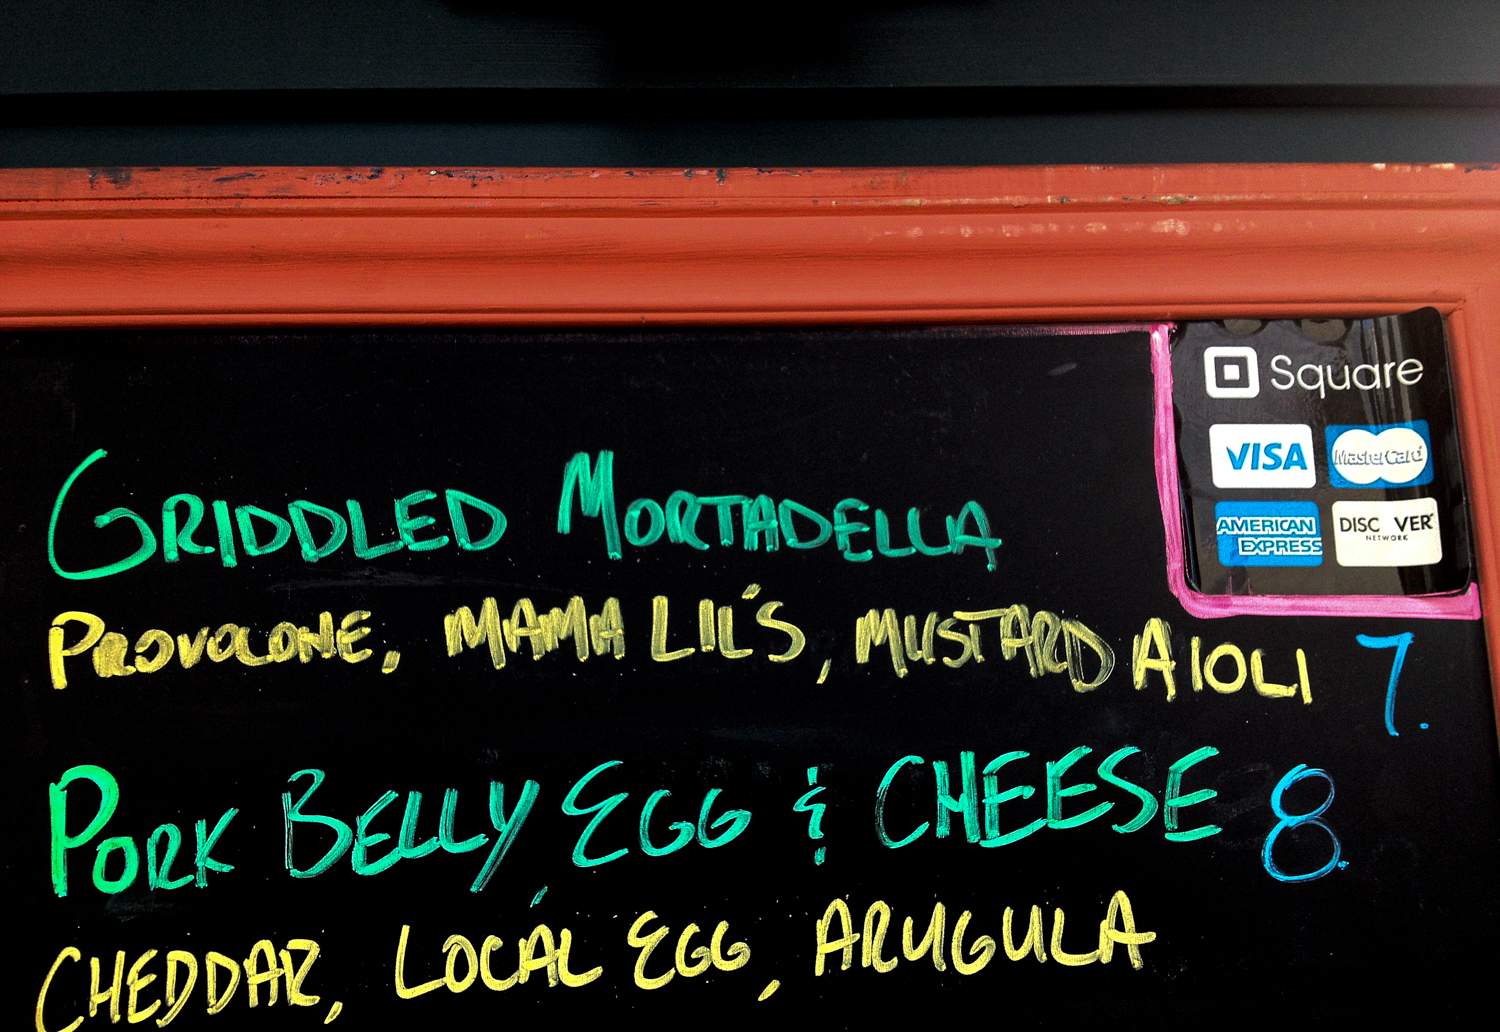 Square
VISA MasterCard
AMERICAN EXPRESS DISCOVER NETWORK
GRIDDLED MORTADELLA
PROVOLONE, MAMA LIL'S, MUSTARD AIOLI 7.
PORK BELLY EGG & CHEESE 8.
CHEDDAR, LOCAL EGG, ARUGULA